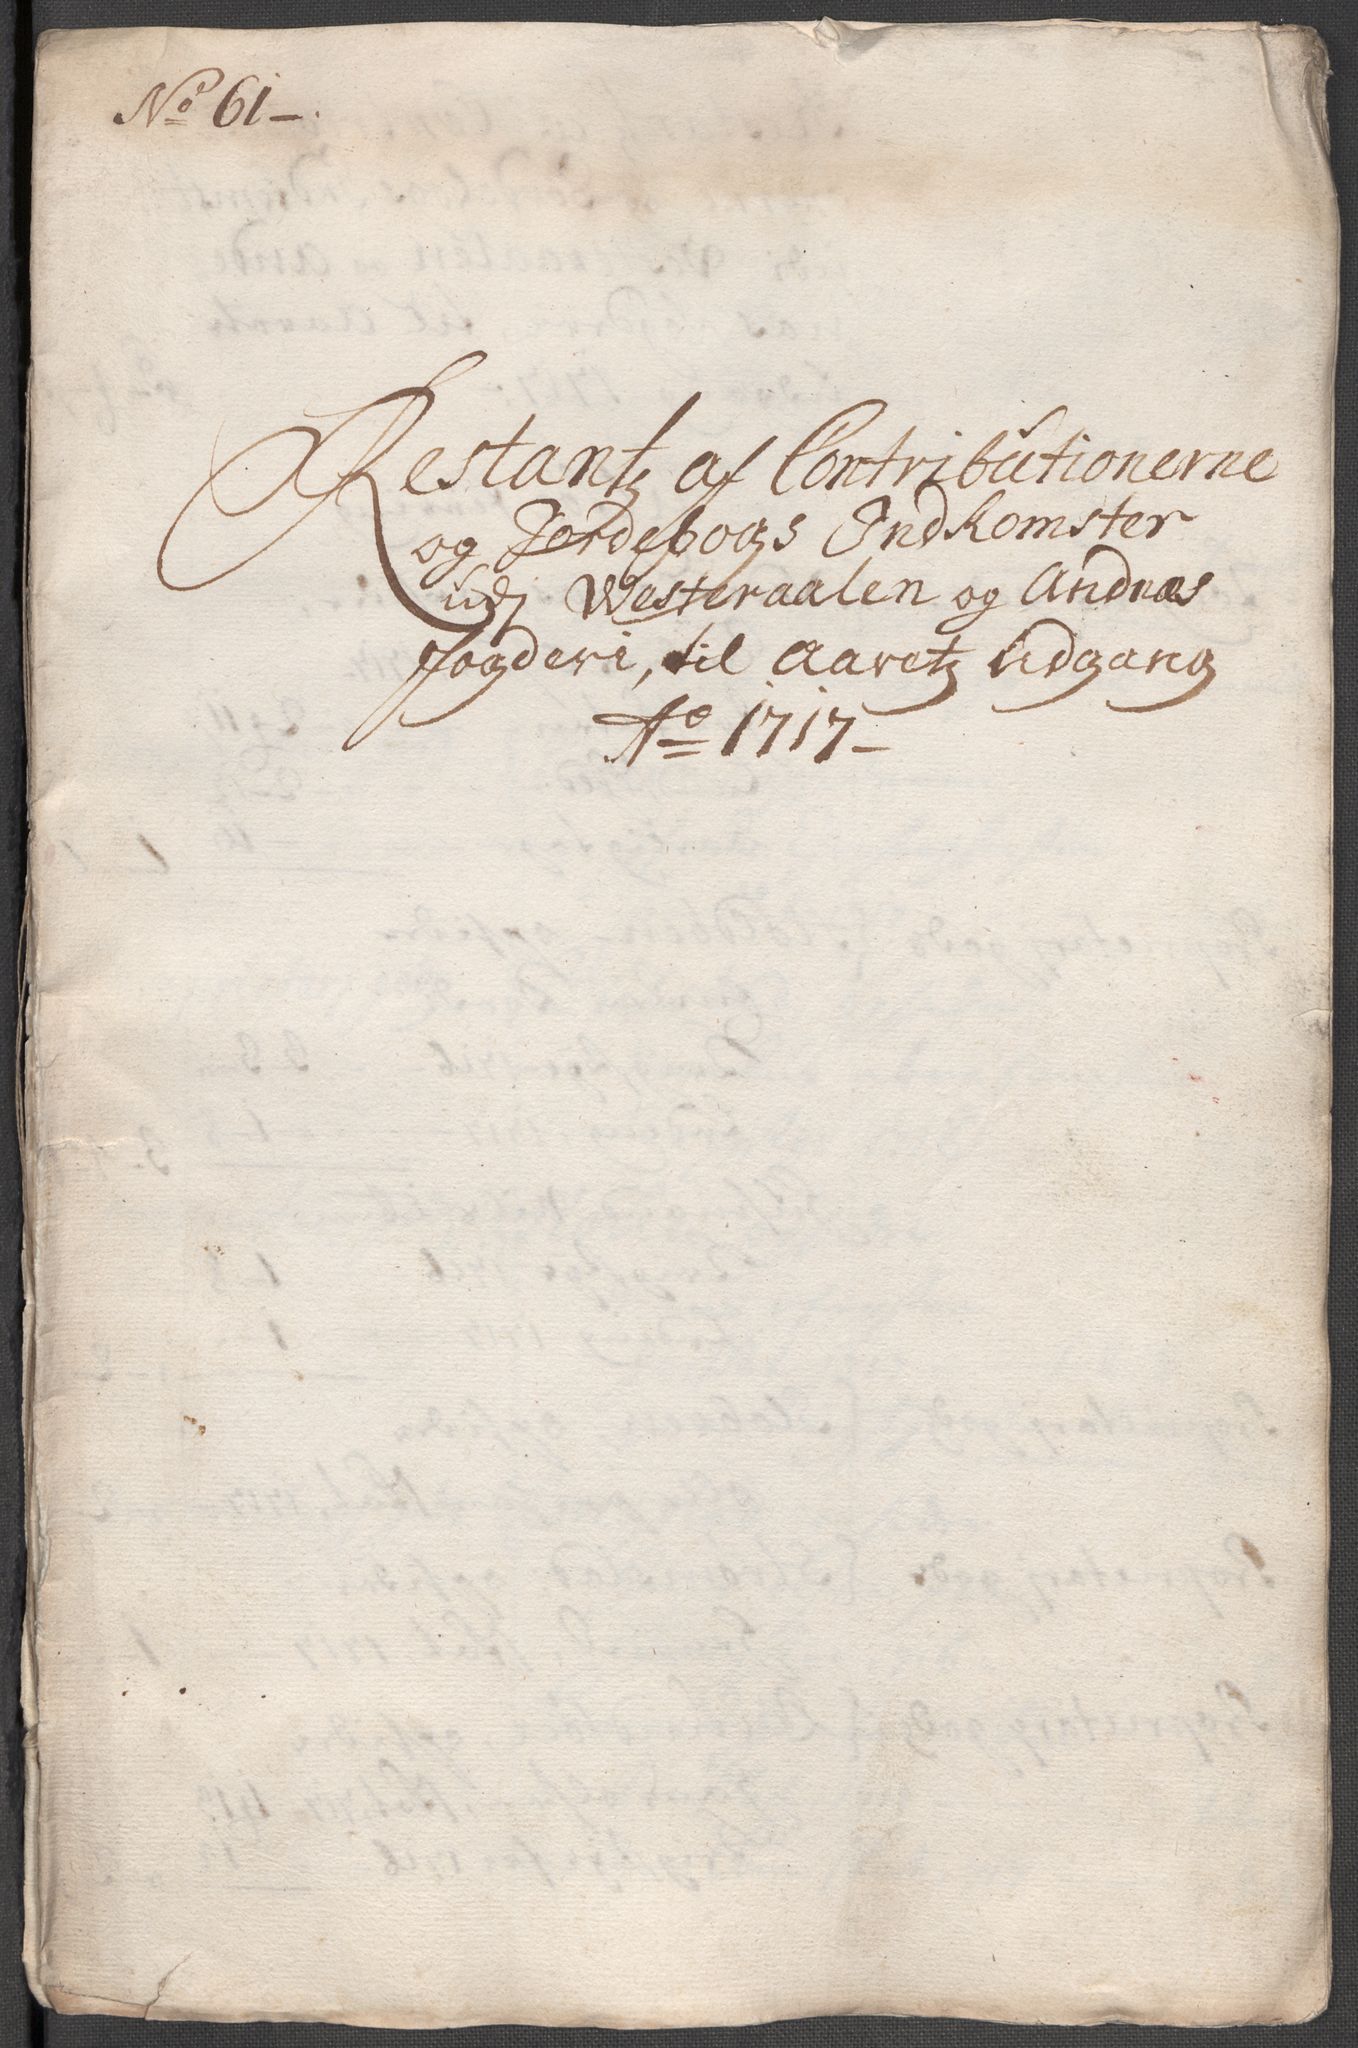 No 61-.
Restantz af Contributionerne
og Jordebogs Indkomster
udj Westeraalen og Andnæs
fogderi, til Aaretz Udgang
Ao 1717-